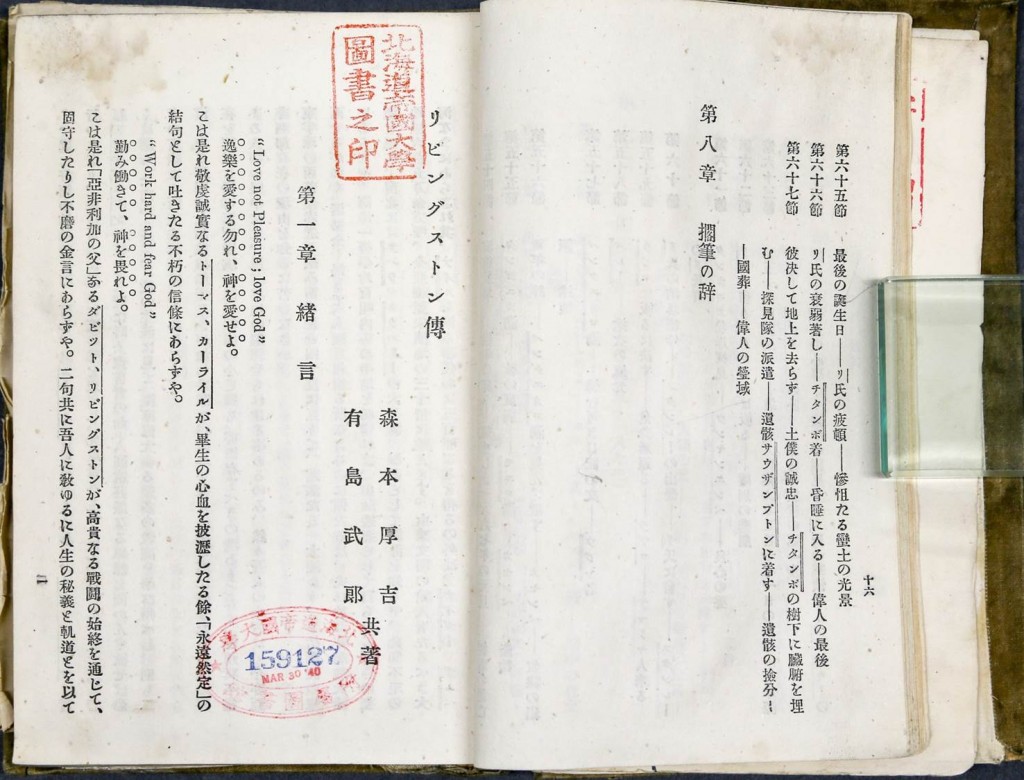 十六
第六十五節　最後の誕生日――リ氏の疲頓――慘怛たる蠻土の光景
第六十六節　リ氏の衰弱著し――チタンボ着――昏睡に入る――偉人の最後
第六十七節　彼決して地上を去らず――土僕の誠忠――チタンボの樹下に臓腑を埋
む――探見隊の派遣――遺骸サウザンプトンに着す――遺骸の撿分――
――國葬――偉人の瑩域
第八章　擱筆の辞
リビングストン傳
森本厚吉
有島武郎
共著
第一章　緒言
“Love not Pleasure ; love God”
逸樂を愛する勿れ、神を愛せよ。
こは是れ敬虔誠實なるトーマス、カーライルが、畢生の心血を披瀝したる餘、「永遠然定」の
結句として吐きたる不朽の信條にあらすや。
“Work hard and fear God”
勤み働きて、神を畏れよ。
こは是れ「亞非利加の父」なるダビット、リビングストンが、高貴なる戰鬪の始終を通じて、
固守したりし不磨の金言にあらすや。二句共に吾人に敎ゆるに人生の秘義と軌道とを以て
一
北海道帝國大學
圖書之印
159127
MAR 30 '40